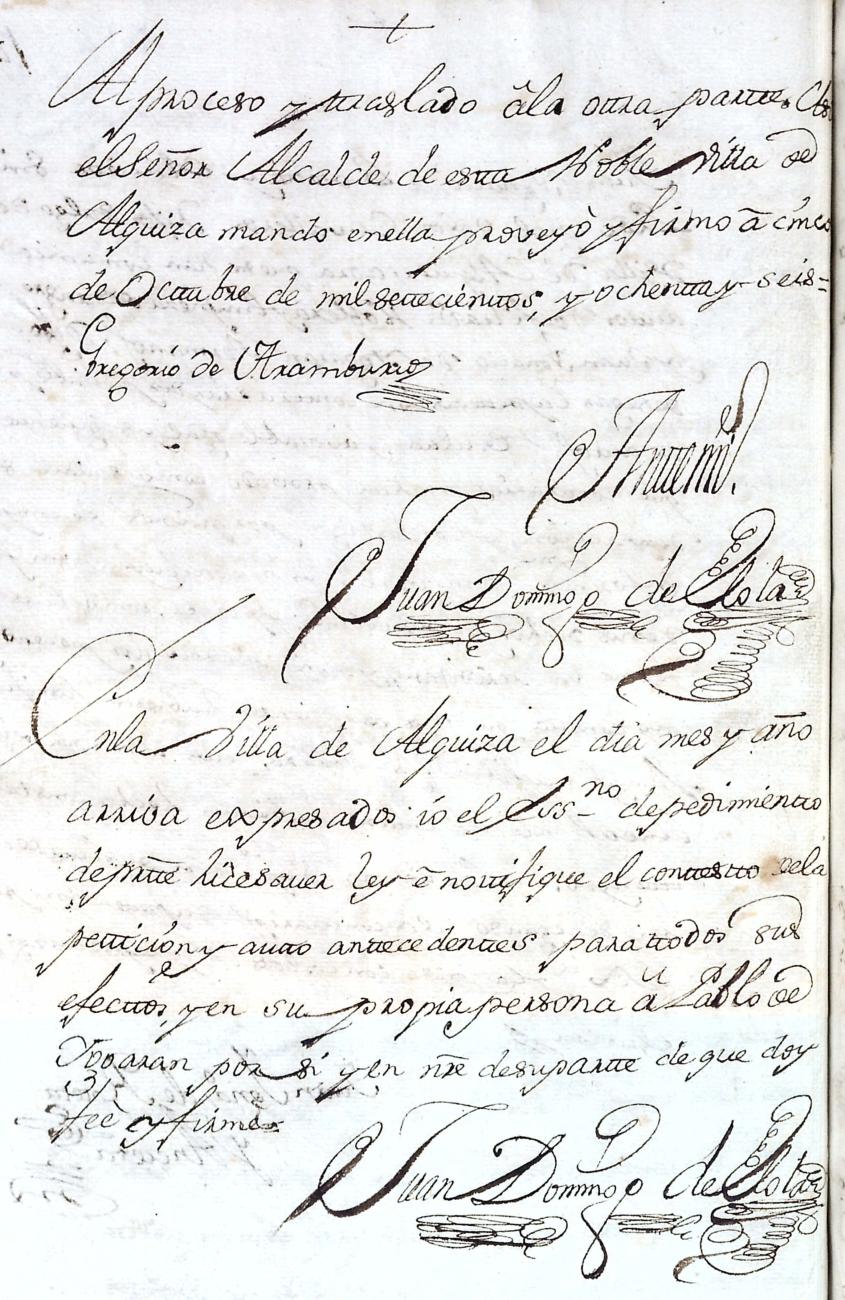 Al proceso y traslado â la otra parte.
el Señor Alcalde de esta Noble Villa de
Alquiza mando en ella proveyò y firmo à cinco
de Octtubre de mil settecienttos, y ochentta y seis=
Gregorio de Aramburu
Antemi.
Juan Domingo de
En la Villa de Alquiza el dia mes y año
arriva expresados io el Ess-no de pedimientto
de partte hize saver ley è nottifique el contestto de la
pettición y autto anttecedenttes para ttodos sus
efecttos, y en su propia persona â Pablo de
Ybaran por si y en nre de su partte de que doy
feè y firme=
Juan Domingo de